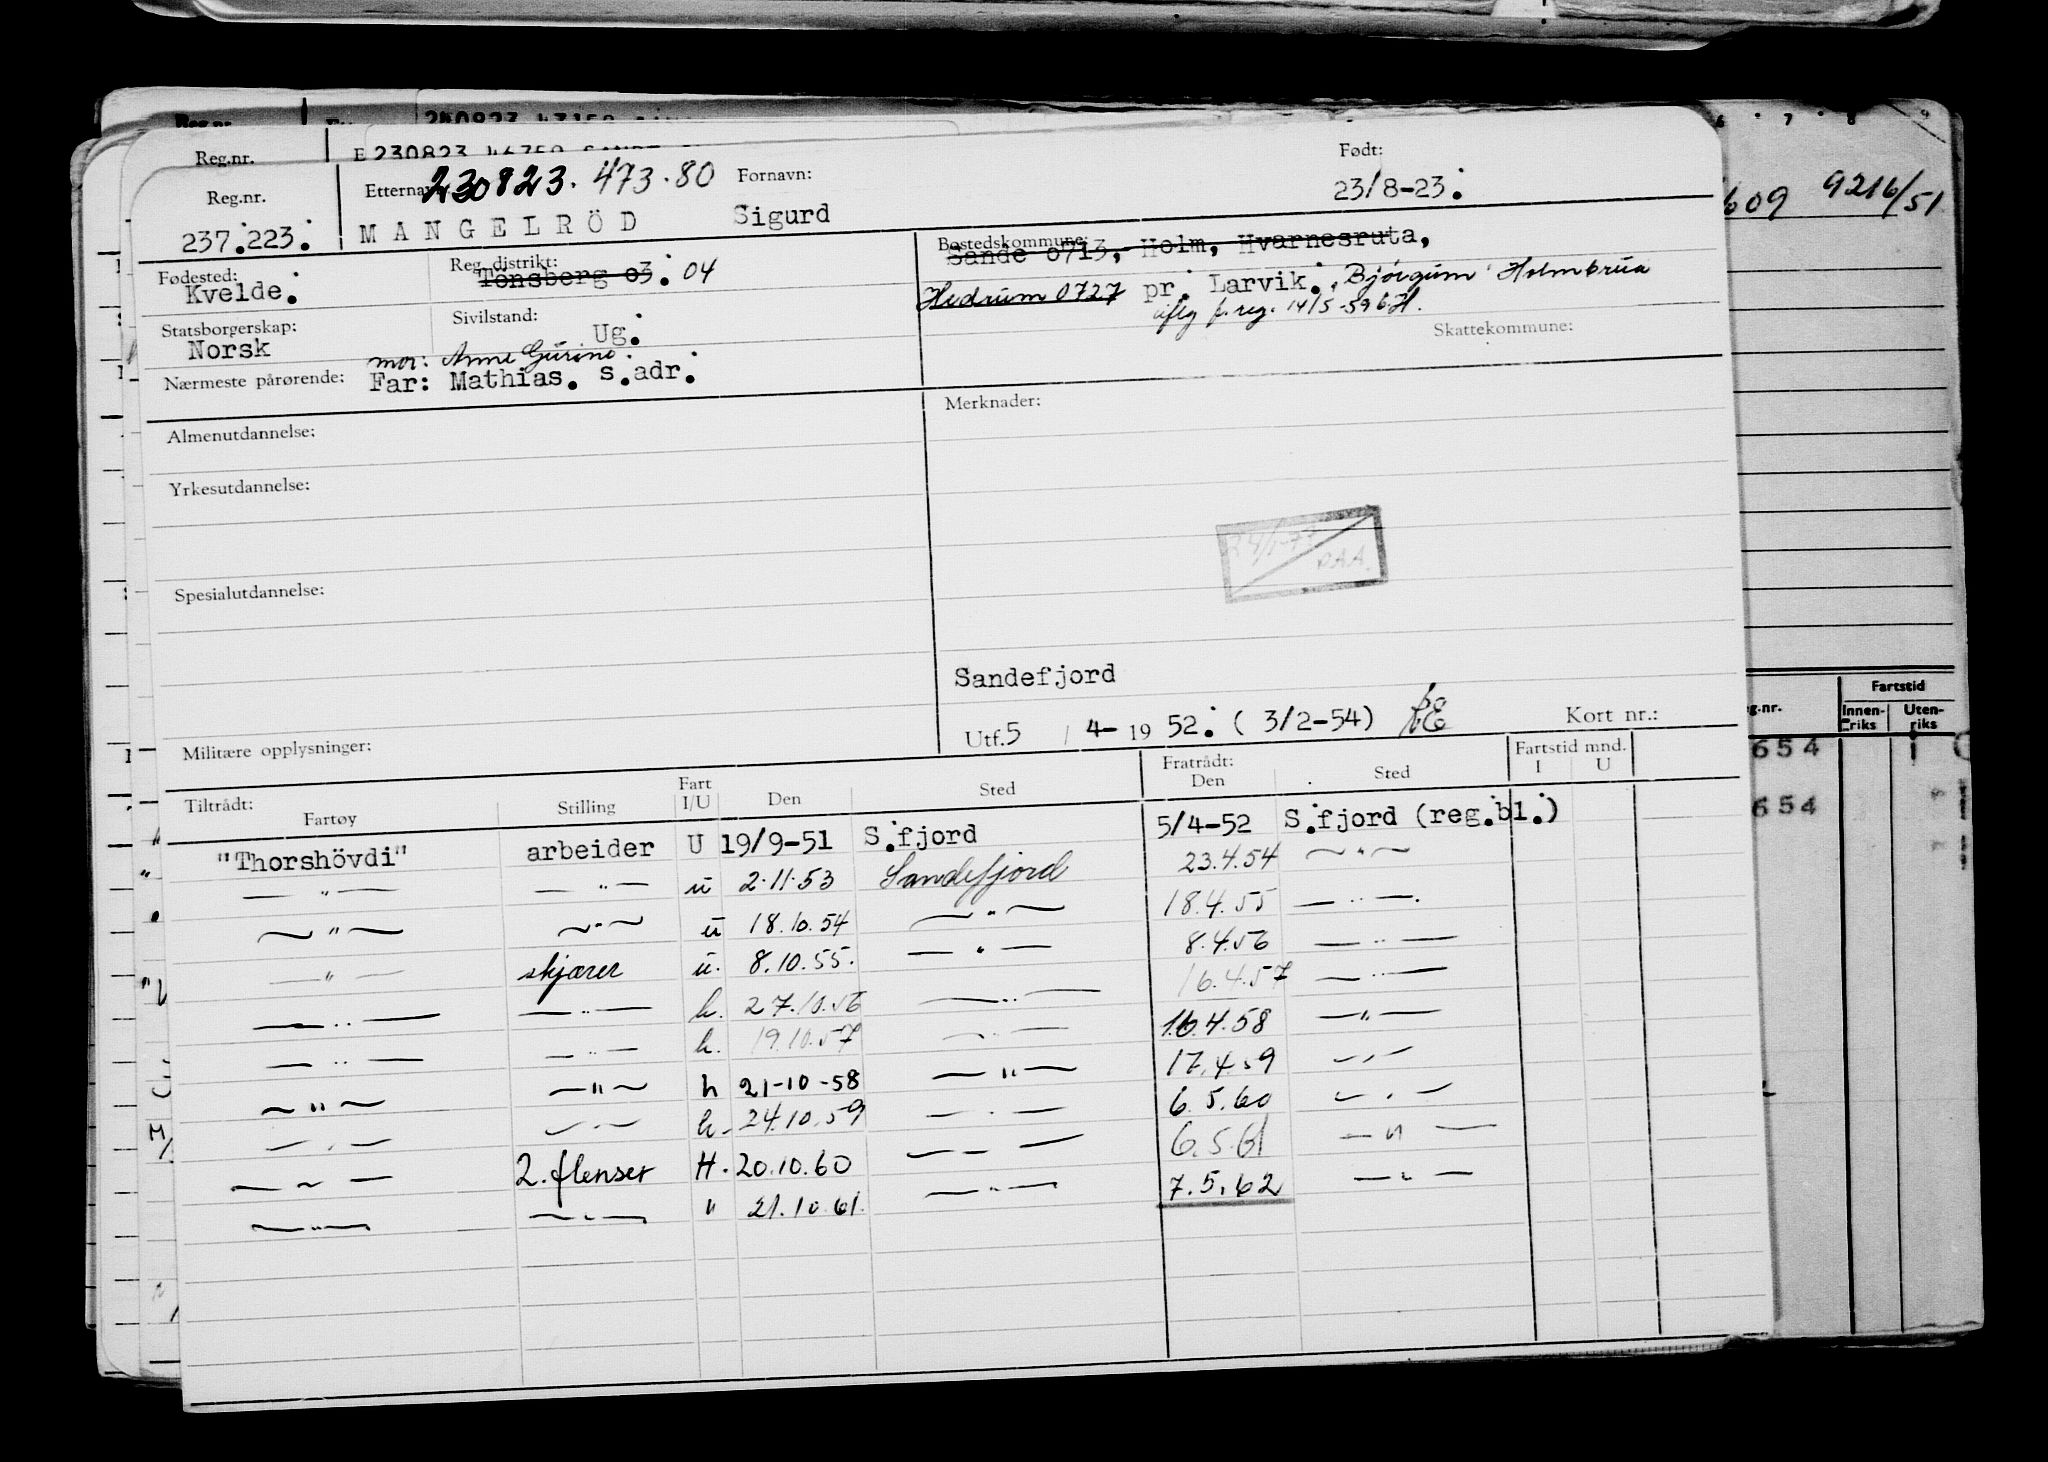 Reg.nr.
Født:
Reg.nr. Etternavn 230823. 473.80 Fornavn: 23/8-23.
237.223. MANGELRÖD Sigurd
9216/51
Fødested: Reg. distrikt: Bostedskommune:
Kvelde. Tönsberg 03. 04 Sande 0713, Holm, Hvarnesruta,
Hedrum 0727 pr. Larvik. Bjørgum Holmbrua
iflg f. reg. 14/5-59
Statsborgerskap: Sivilstand: Skattekommune:
Norsk Ug.
mor: Anne Gurine.
Nærmeste pårørende: Far: Mathias. s.adr.
Almenutdannelse: Merknader:
Yrkesutdannelse:
Spesialutdannelse:
Sandefjord
Utf. 5 / 4- 19 52. ( 3/2-54) Kort nr.:
Militære opplysninger:
Tiltrådt: Fratrådt: Fartstid mnd.
Fartøy Stilling Fart I/U Den Sted Den Sted I U
"Thorshövdi" arbeider U 19/9-51 S.fjord 5/4-52 S.fjord (reg.bl.)
— " — — " — u 2.11.53 Sandefjord 23.4.54 — " —
— " — — " — u 18.10.54 — " — 18.4.55 — " —
— " — skjærer u. 8.10.55. — " — 8.4.56 — " —
— " — — " — h. 27.10.56 — " — 16.4.57 — " —
— " — — " — h. 19.10.57 — " — 16.4.58 — " —
— " — — " — h 21-10-58 — " — 17.4.59 — " —
— " — — " — h. 24.10.59 — " — 6.5.60 — " —
— " — 2. flenser H. 20.10.60 — " — 6.5.61 — " —
— " — — " — " 21.10.61. — " — 7.5.62 — " —
Fartstid
Innen-riks Uten-riks
654
654